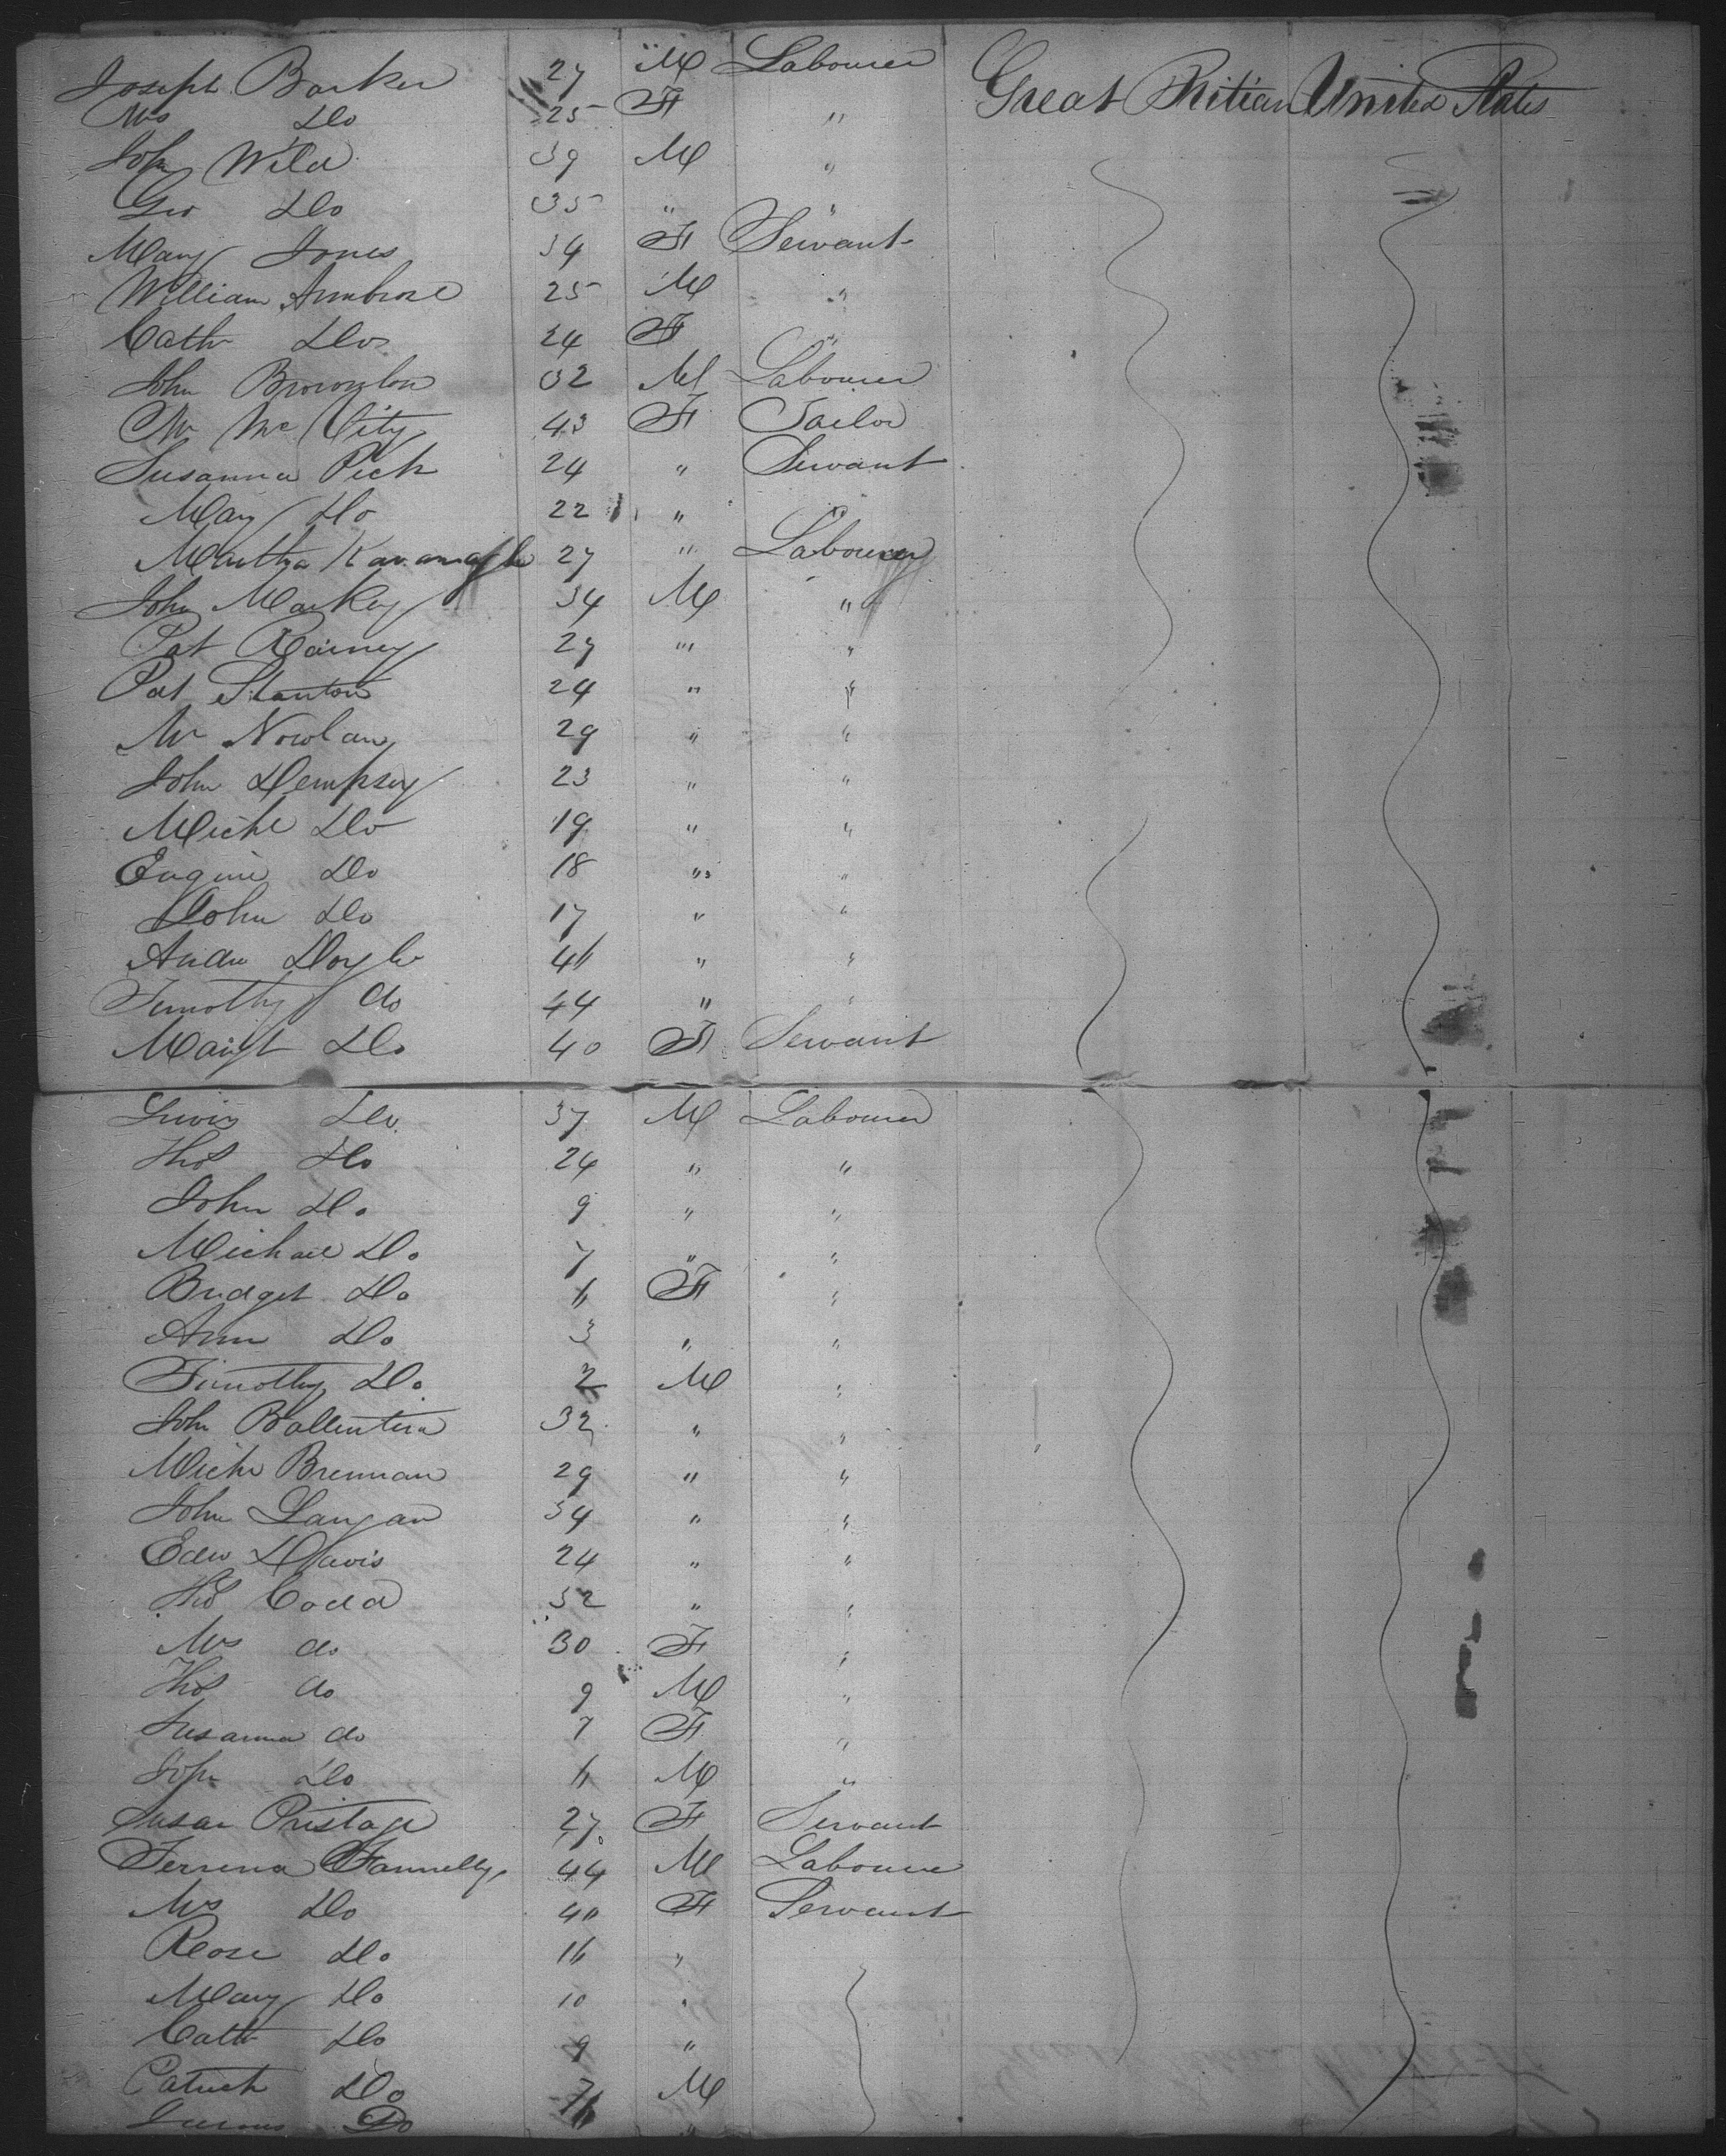 Joseph Barker 27 M Labourer Great Britian United States
Mrs Do 25 F "
John Wild 39 M "
Geo Do 35 " "
Mary Jones 34 F Servant
William Ambrose 25 M "
Cath Do 24 F "
John Brownlow 32 M Labourer
Mr Mc City 43 F Tailor
Susanna Peck 24 " Servant
Mary Do 22 " "
Martha Kavanagh 27 " Labourer
John Markey 34 M "
Pat Rainey 27 " "
Pat Stanton 24 " "
Mr Nowlan 29 " "
John Dempsey 23 " "
Michl Do 19 " "
Eugine Do 18 " "
John Do 17 " "
Andw Doyle 46 " "
Timothy do 44 " "
Margt Do 40 F Servant
Lewis Do 37 M Labourer
Thos Do 24 " "
John Do 9 " "
Michael Do 7 " "
Bridget Do 6 F "
Ann Do 3 " "
Timothy Do 2 M "
John Ballentine 32 " "
Michl Brennan 29 " "
John Langan 34 " "
Edw Davis 24 " "
Thos Codd 32 " "
Mrs do 30 F "
Thos do 9 M "
Susanna do 7 F "
John Do 6 M "
Susan Pristage 27 F Servant
Fannelly 44 M Labourer
Mrs Do 40 F Servant
Rose Do 16 "
Mary Do 10 "
Cath Do 9 "
Patrick Do 7 M
Do 6 "